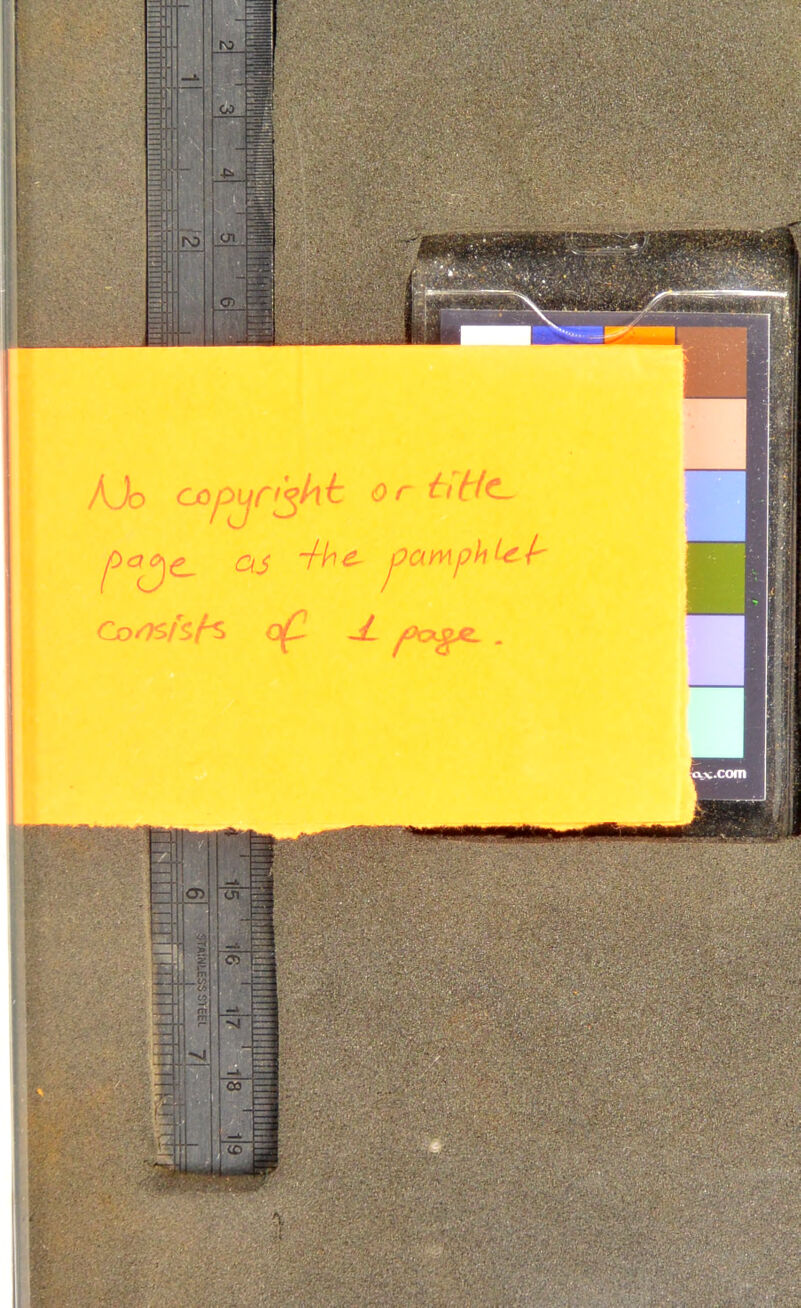 2
1
3
4
2
5
6
No copyright or title
page as the pamphlet
consists of 1 page.
ax.com
6
15
16
STAINLESS STEEL
17
7
18
19